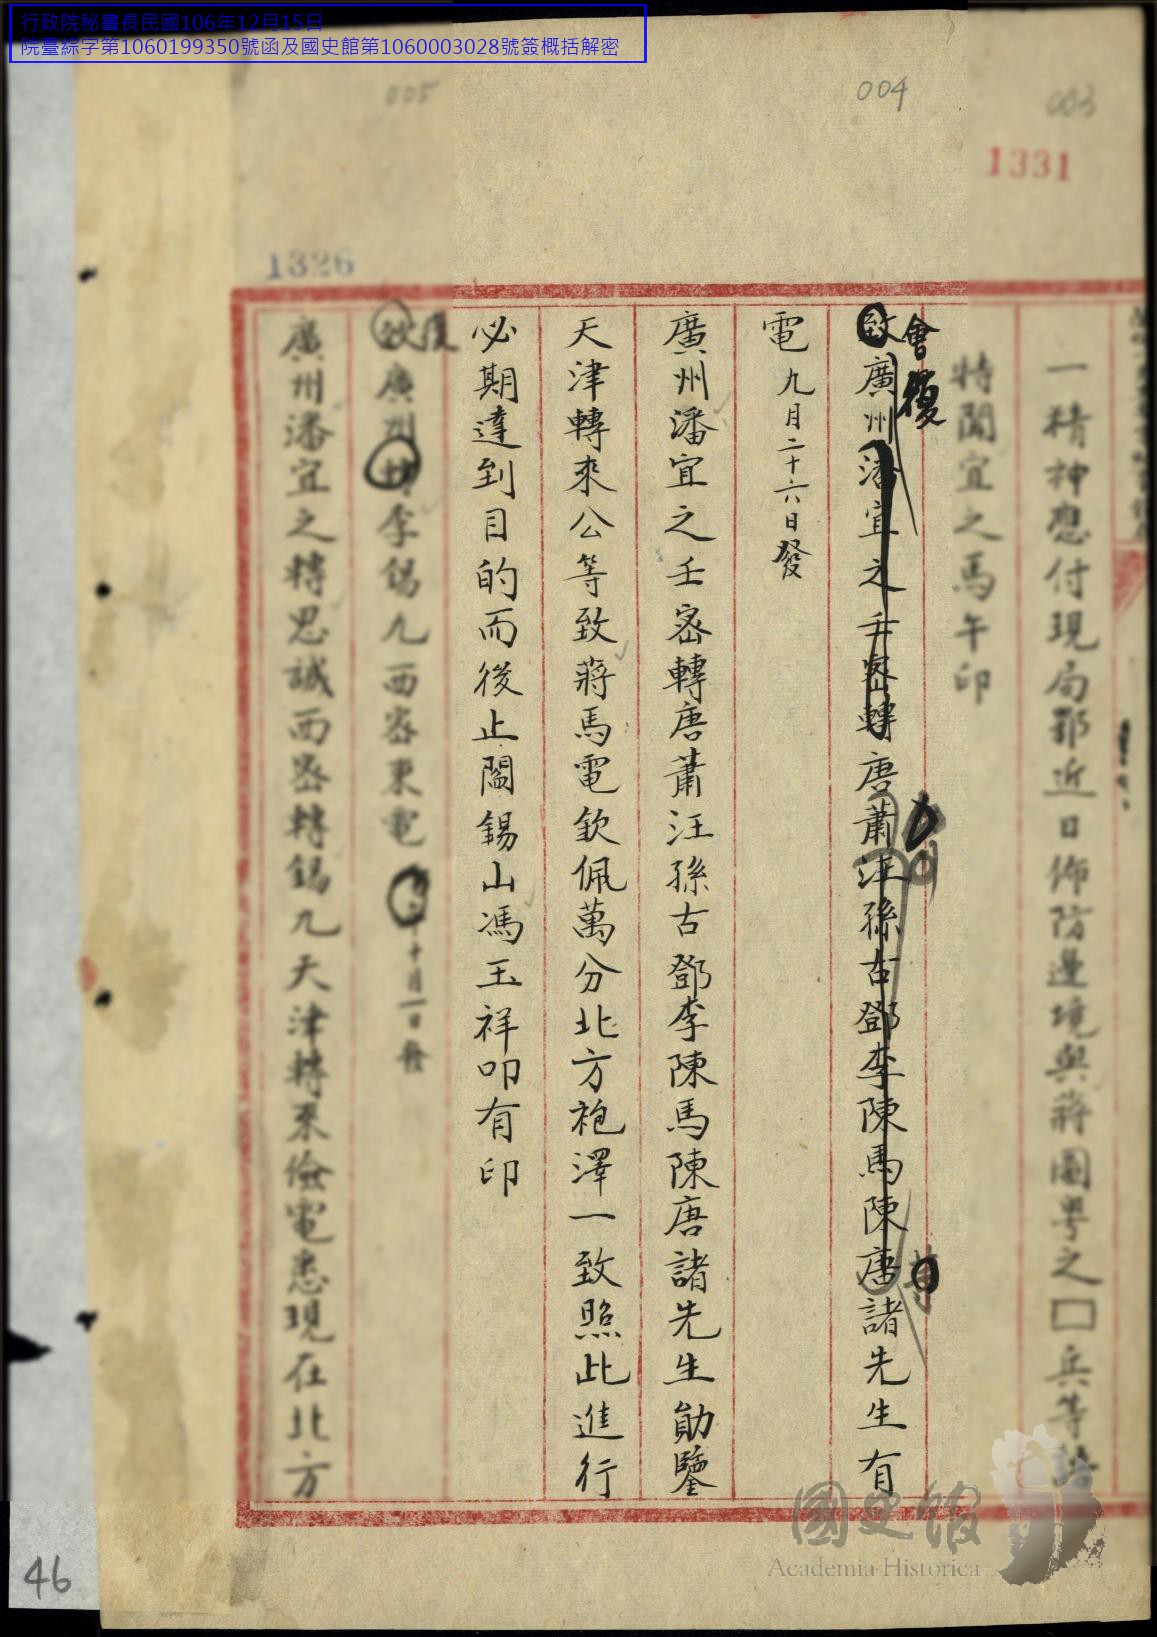 行政院秘書長民國106年12月15日
院臺綜字第1060199350號函及國史館第1060003028號簽概括解密
005
004
003
1331
1326
一精神應付現局鄂近日佈防邊境與蔣圖粵之□兵等語
特聞宜之馬午印
會復
致廣州潘宜之壬密轉唐蕭汪孫古鄧李陳馬陳唐諸先生有
電九月二十六日發
廣州潘宜之壬密轉唐蕭汪孫古鄧李陳馬陳唐諸先生勛鑒
天津轉來公等致蔣馬電欽佩萬分北方袍澤一致照此進行
必期達到目的而後止閻錫山馮玉祥叩有印
復
致廣州李錫九西密東電十月一日發
廣州潘宜之轉思誠西密轉錫九天津轉來儉電悉現在北方
國史館
Academia Historica
46